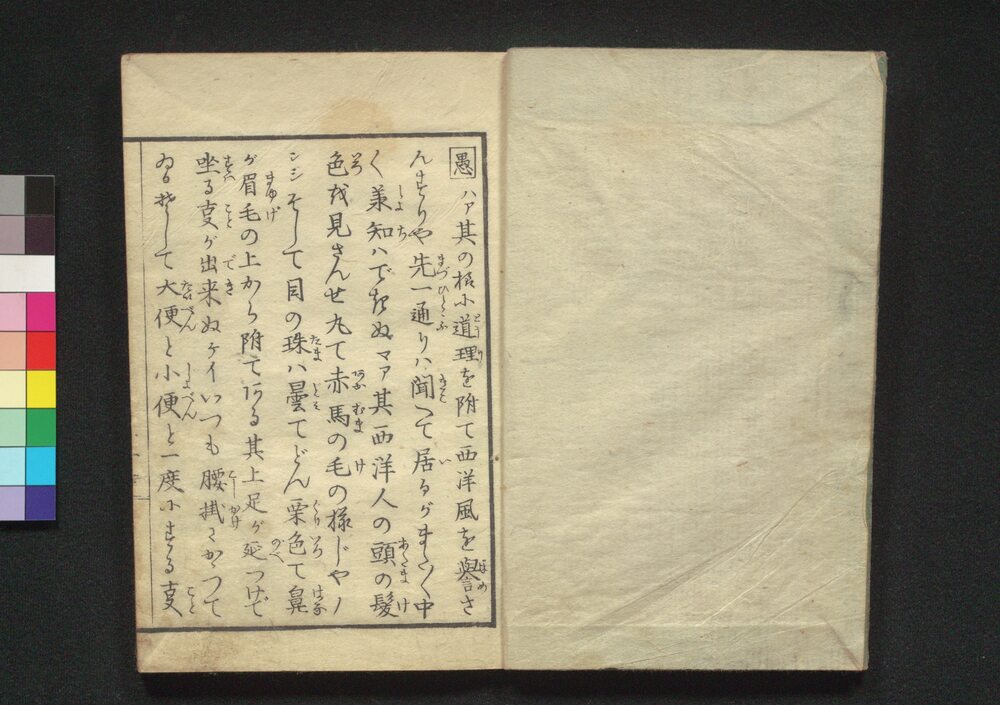 愚ハァ其の様に道理を附て西洋風を譽さ
んすりや先一通りハ聞こて居るがまだ〳〵中
〳〵兼知ハできぬマア其西洋人の頭の髪
色を見さんせ丸で赤馬の毛の様じやノ
シシそして目の珠ハ曇てどん栗色で鼻
が眉毛の上から附てある其上足が延つけで
坐る事が出来ぬケイいつも腰掛にかゝつて
ゐるそして大便と小便と一度にする事